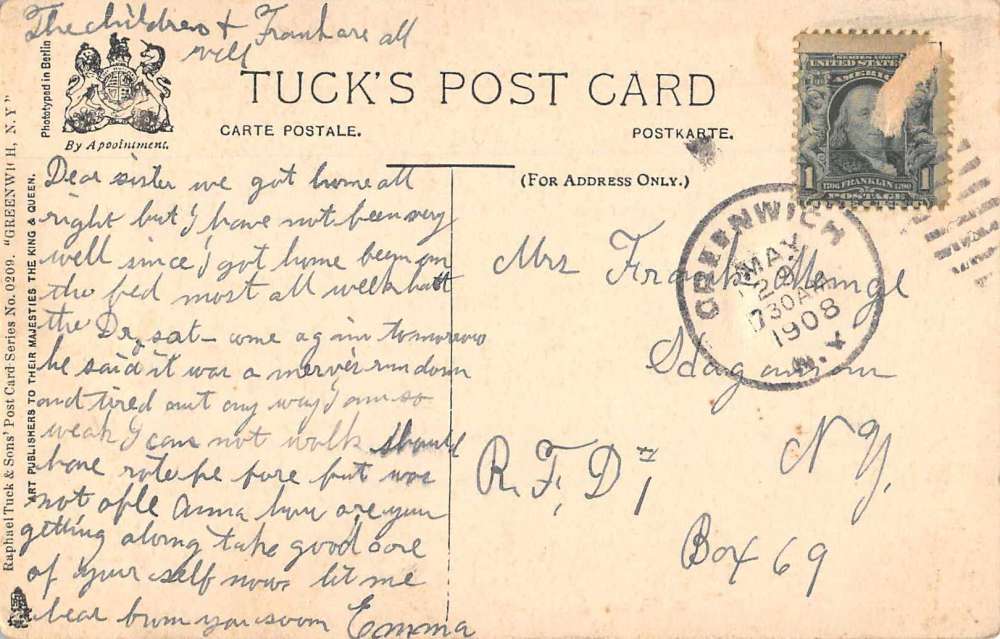 The children & Frank are all
well
TUCK'S POST CARD
CARTE POSTALE.
POSTKARTE.
(FOR ADDRESS ONLY.)
By Appointment.
Phototyped in Berlin
Raphael Tuck & Sons' Post Card Series No. 0209. "GREENWICH, N.Y"
ART PUBLISHERS TO THEIR MAJESTIES THE KING & QUEEN.
Dear sister we got home all
right but I have not been very
well since I got home been on
the bed most all week hatt
the Dr, sat - come again tomorrow
he said it was a nerves run down
and tired out any way I am so
weak I can not walk should
have rote be fore but was
not able Anna how are you
getting along take good care
of your self now let me
hear from you soon Emma
SERIES 1902
UNITED STATES
AMERICA
1 1706 FRANKLIN 1790 1
POSTAGE
GREENWICH
MAY
29
730 AM
1908
N.Y.
Mrs Frank
N Y,
R. F, D 1
Box 69